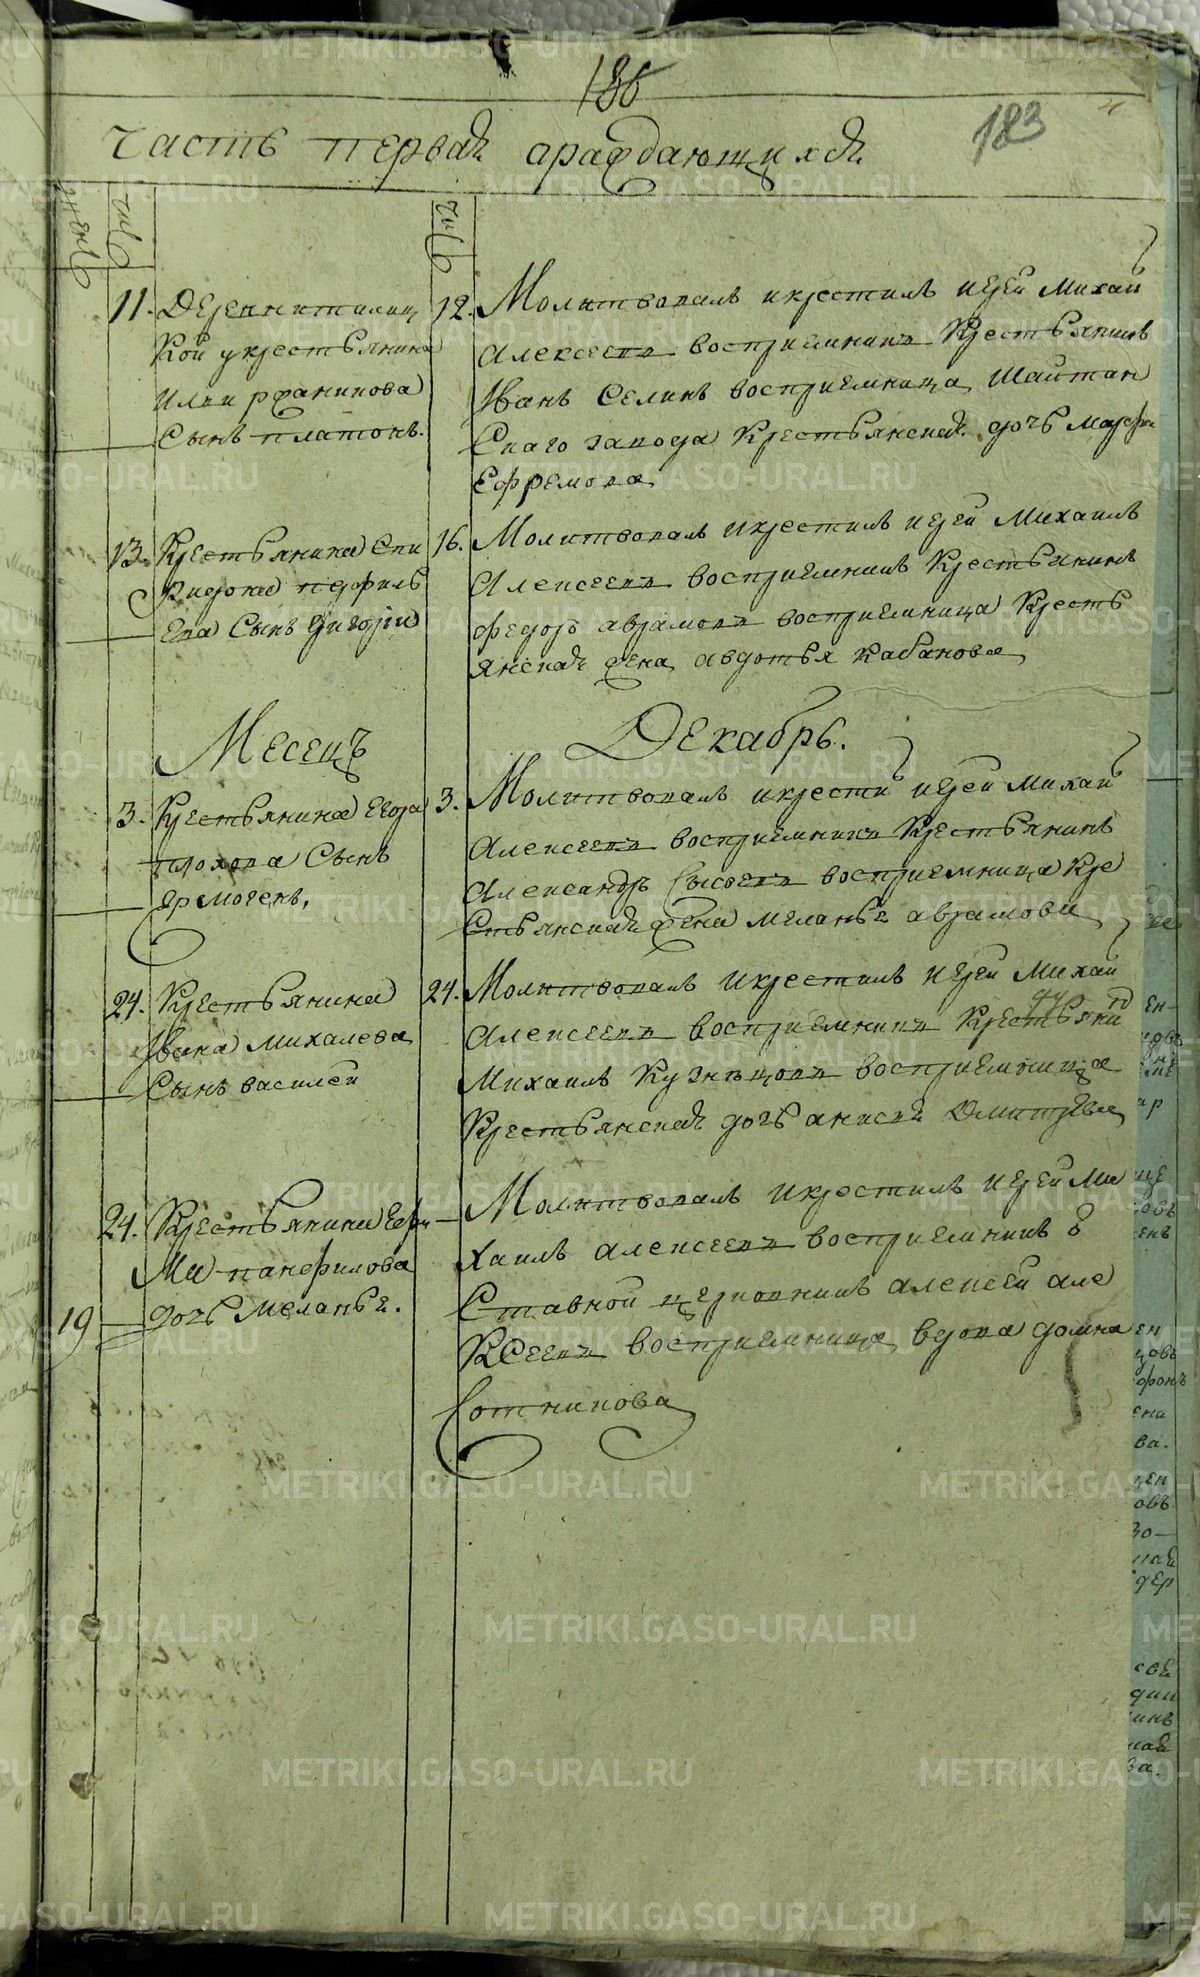 186
183
Часть первая араждающихся
числ
числ
11. Деревни
кой укрестьянина
Илии ржаникова
Сынъ платонъ.
12. Молитвовалъ икрестилъ иерей михаи
Алексеевъ восприемникъ крестьянинъ
Иванъ Селинъ восприемница Шайтан
Скаго завода крестьянская дочь марфа
Ефремова
13. Крестьянина Спи
ридона перфиль
ева Сынъ григорiи
16. Молитвовалъ икрестилъ иерей Михаилъ
Алексеевъ восприемникъ крестьянинъ
федоръ аврамовъ восприемница кресть
янская жена авдотья кабанова
Месецъ Декабрь.
3. Крестьянина Егора
плохова Сынъ
Ермогенъ,
3. Молитвовалъ икрести иерей михаи
Алексеевъ восприемникъ крестьянинъ
Александръ Сысоевъ восприемница кре
Стьянская жена меланья аврамова
24. Крестьянина
Ивана михалева
Сынъ василей
24. Молитвовалъ икрестилъ иерей Михаи
Алексеевъ восприемникъ крестьяни
Михаилъ Кузнецовъ восприемница
Крестьянская дочь анисья Дмитрева
24. Крестьянина Ефи
Ма панфилова
дочь меланья.
19
Молитвовалъ икрестилъ иерей Ми
хаилъ алексеевъ восприемникъ о
Ставной церковникъ алексей але
ксеевъ восприемница вдова домна
Сотникова
METRIKI.GASO-URAL.RU